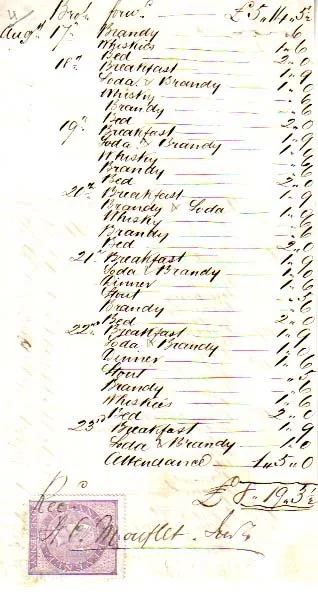 4 Brot. forwd. £5"14"5½
Augst 17th Brandy "6
Whiskies 1"6
Bed 2"0
18th Breakfast 1"9
Soda & Brandy 1"0
Whisky "6
Brandy "6
Bed 2"0
19th Breakfast 1"9
Soda & Brandy 1"0
Whisky "6
Brandy "6
Bed 2"0
20th Breakfast 1"9
Brandy & Soda 1"0
Whisky "6
Brandy "6
Bed 2"0
21st Breakfast 1"9
Soda & Brandy 1"0
Dinner 1"6
Stout
Brandy "6
Bed 2"0
22nd Breakfast 1"9
Soda & Brandy 1"0
Dinner 1"6
Stout
Brandy "6
Whiskies 1"6
Bed 2"0
23rd Breakfast 1"9
Soda & Brandy 1"0
Attendance 1"5"0
£ 19"3½
Recd
Mouflet